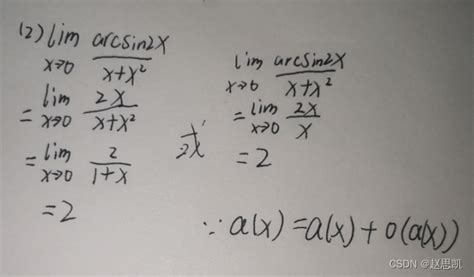 (2) lim x→0 arcsin2x / x+x²
= lim x→0 2x / x+x²
= lim x→0 2 / 1+x
= 2
或
lim x→0 arcsin2x / x+x²
= lim x→0 2x / x
= 2
∵ a(x) = a(x) + o(a(x))
CSDN @赵思凯